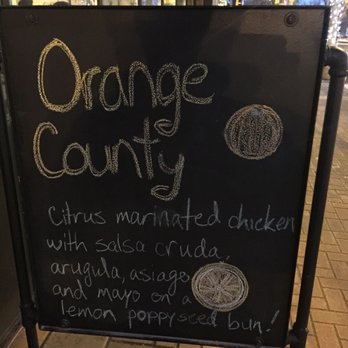 Orange
County
Citrus marinated chicken
with salsa cruda,
arugula, asiago
and mayo on a
lemon poppyseed bun!